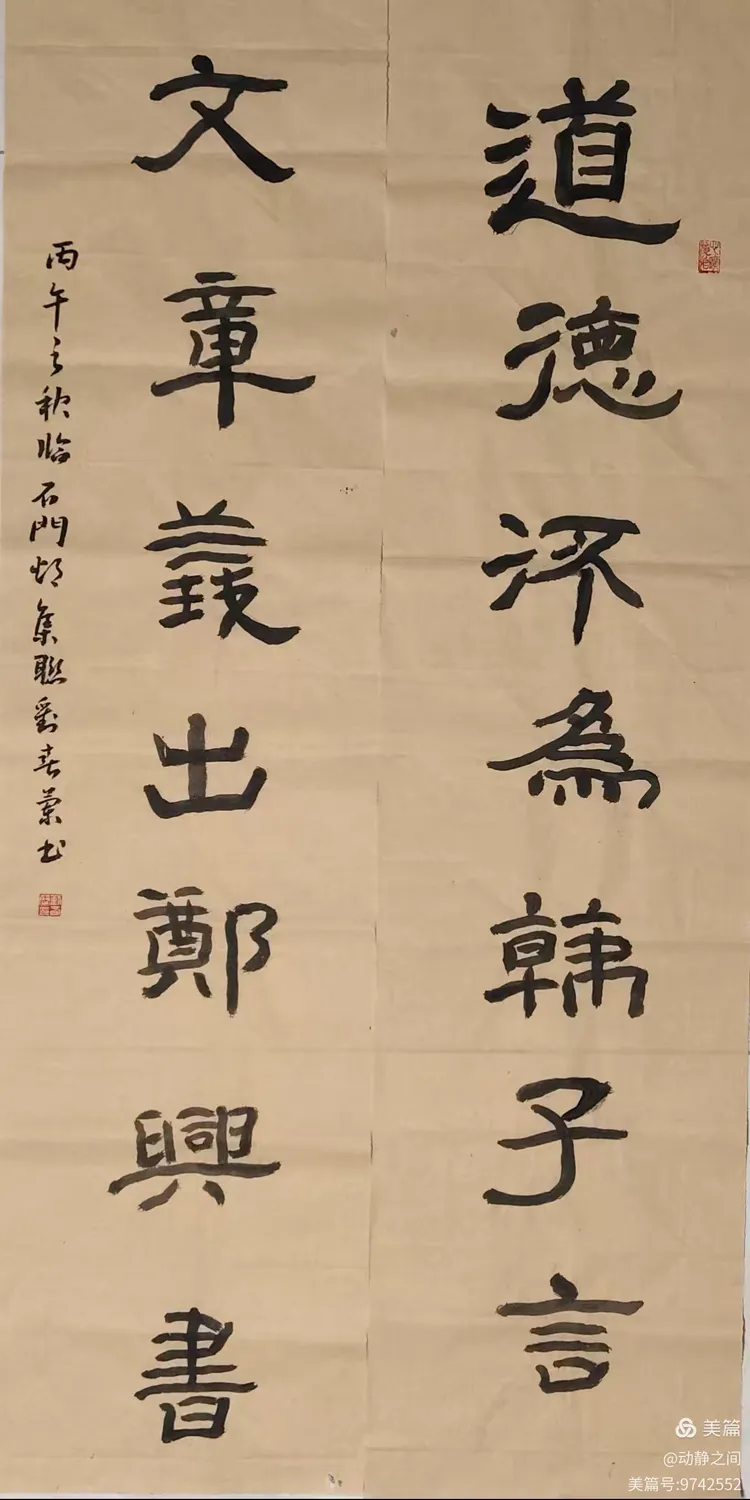 道德深為韓子言
文章義出鄭興書
丙午之秋臨石門頌集聯劉春蘭书
美篇
@动静之间
美篇号:9742552